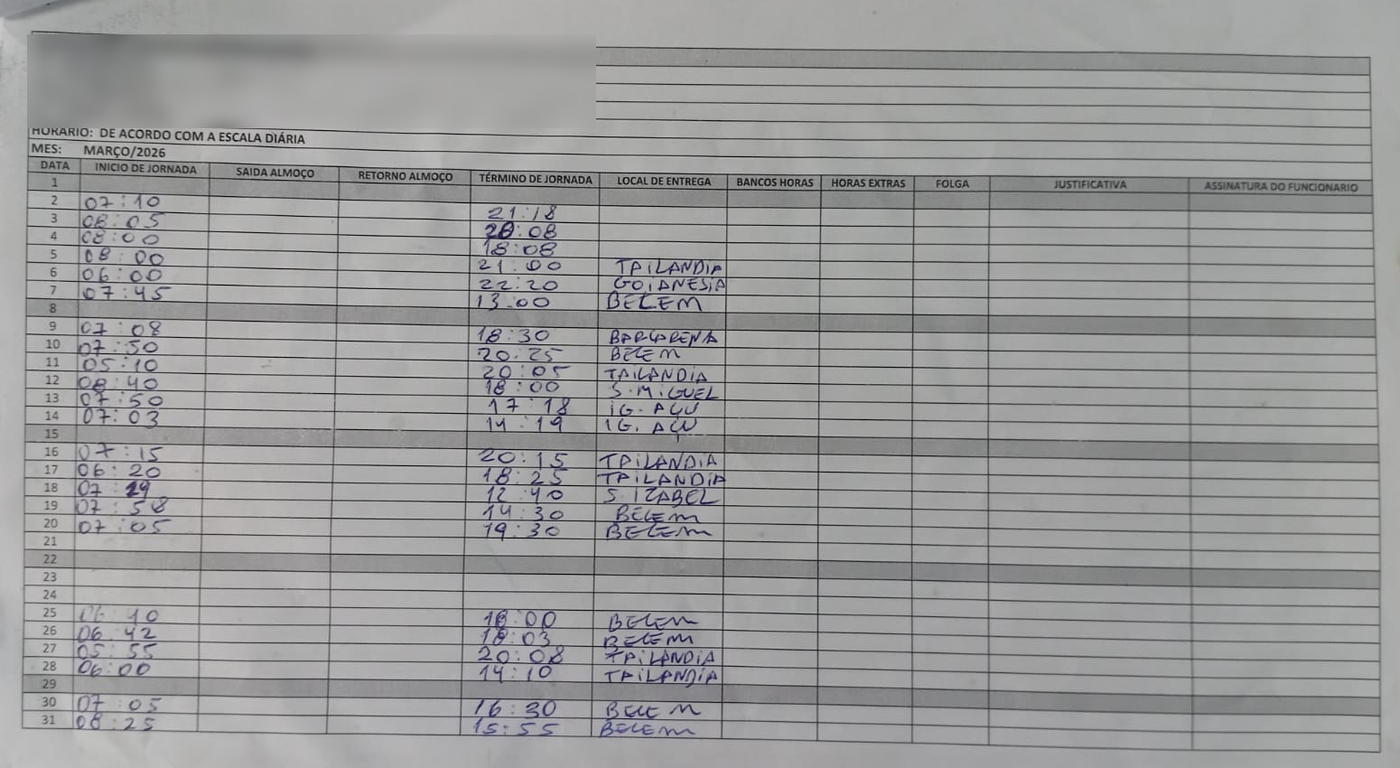 HORARIO: DE ACORDO COM A ESCALA DIÁRIA
MES: MARÇO/2026
DATA INICIO DE JORNADA SAIDA ALMOÇO RETORNO ALMOÇO TÉRMINO DE JORNADA LOCAL DE ENTREGA BANCOS HORAS HORAS EXTRAS FOLGA JUSTIFICATIVA ASSINATURA DO FUNCIONARIO
1
2 07:10 21:18
3 08:05 20:08
4 08:00 18:08
5 08:00 21:00 TAILANDIA
6 06:00 22:20 GOIANESIA
7 07:45 13:00 BELEM
8
9 07:08 18:30 BARCARENA
10 07:50 20:25 BELEM
11 05:10 20:05 TAILANDIA
12 08:40 18:00 S. MIGUEL
13 07:50 17:18 IG. AÇU
14 07:03 14:19 IG. AÇU
15
16 07:15 20:15 TAILANDIA
17 06:20 18:25 TAILANDIA
18 07:29 12:40 S. IZABEL
19 07:58 14:30 BELEM
20 07:05 19:30 BELEM
21
22
23
24
25 06:40 18:00 BELEM
26 06:42 18:03 BELEM
27 05:55 20:08 TAILANDIA
28 06:00 14:10 TAILANDIA
29
30 07:05 16:30 BELEM
31 08:25 15:55 BELEM